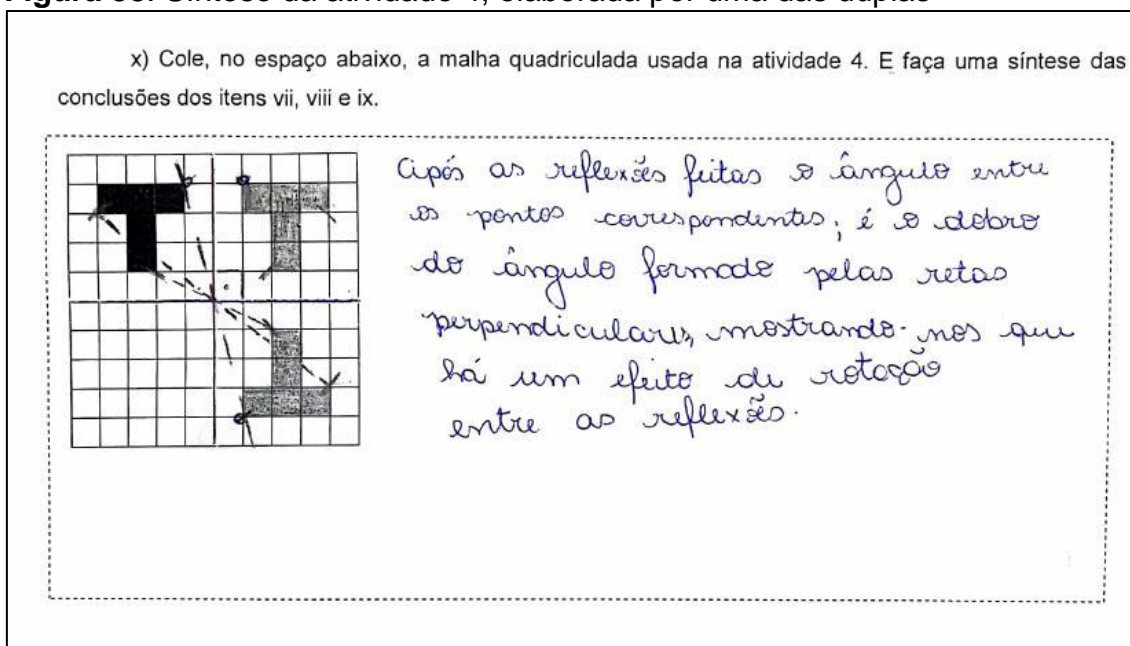 x) Cole, no espaço abaixo, a malha quadriculada usada na atividade 4. E faça uma síntese das
conclusões dos itens vii, viii e ix.
Após as reflexões feitas o ângulo entre
os pontos correspondentes; é o dobro
do ângulo formado pelas retas
perpendiculares, mostrando-nos que
há um efeito de rotação
entre as reflexões.